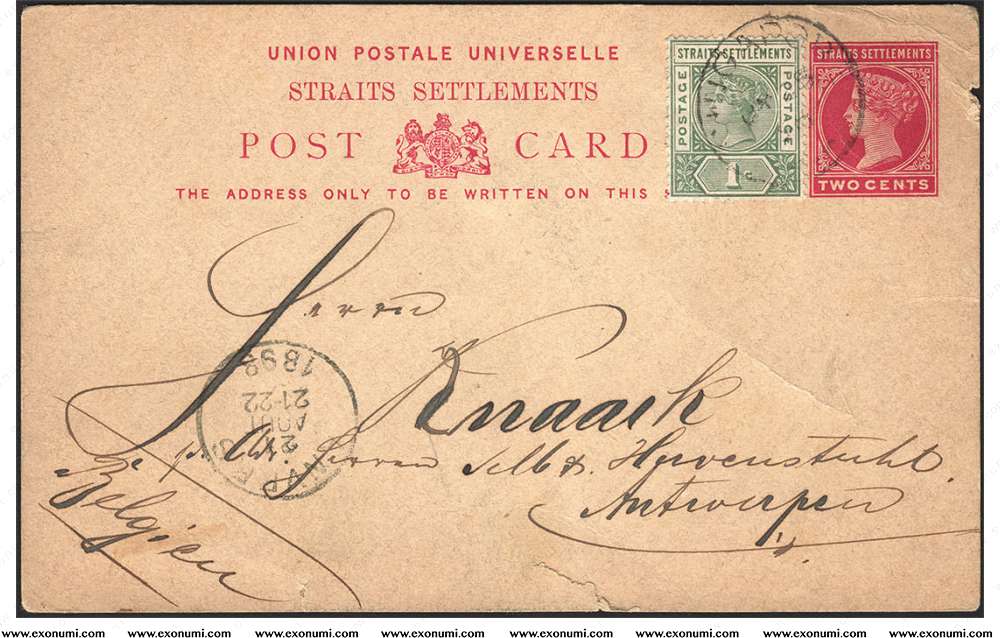 UNION POSTALE UNIVERSELLE
STRAITS SETTLEMENTS
POST CARD
THE ADDRESS ONLY TO BE WRITTEN ON THIS
STRAITS SETTLEMENTS
POSTAGE POSTAGE
1c
STRAITS SETTLEMENTS
TWO CENTS
Herrn
Knaack
Herren
Antwerpen
Belgien
ANVERS
2
AOUT
21-22
1898
www.exonumi.com www.exonumi.com www.exonumi.com www.exonumi.com www.exonumi.com www.exonumi.com www.exonumi.com www.exonumi.com